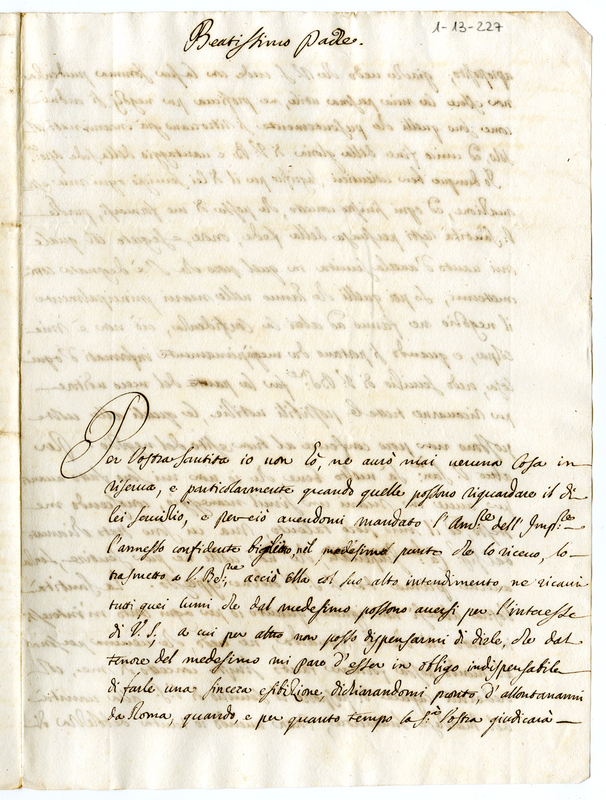 1-13-227
Beatissimo Padre.
Per Vostra Santità io non hò, ne aurò mai veruna cosa in
riserva, e particolarmente quando quelle possono riguardare il di
lei servizio, e perciò auendomi mandato l'Am:re dell'Imp:re
l'annesso confidente biglietto, nel medesimo punto che lo riceuo, lo
trasmetto a V. Be:ne acciò Ella col suo alto intendimento, ne ricaui
tutti quei lumi che dal medesimo possono auersi per l'interesse
di V. S., a cui per altro non posso dispensarmi di dirle, che dal
tenore del medesimo mi pare d'esser in obligo indispensabile
di farle una sincera esibizione, dichiarandomi pronto, d'allontanarmi
da Roma, quando, e per quanto tempo la S:tà Vostra giudicarà